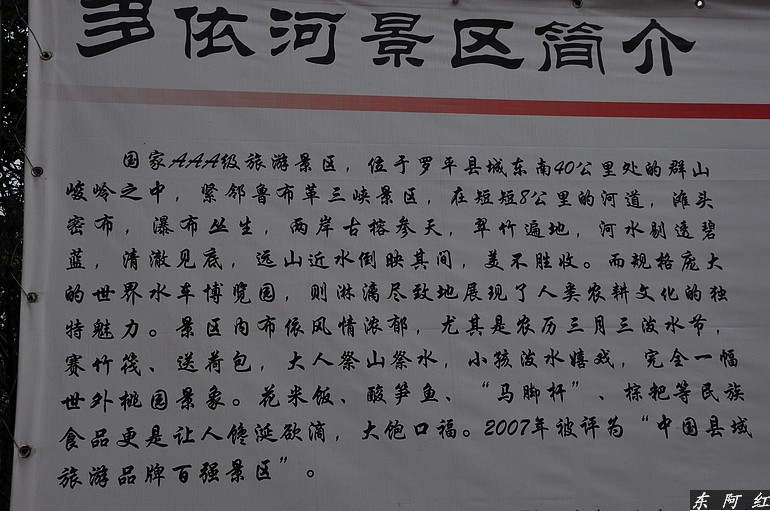 多依河景区简介
国家AAA级旅游景区，位于罗平县城东南40公里处的群山
峻岭之中，紧邻鲁布革三峡景区，在短短8公里的河道，滩头
密布，瀑布丛生，两岸古榕参天，翠竹遍地，河水剔透碧
蓝，清澈见底，远山近水倒映其间，美不胜收。而规格庞大
的世界水车博览园，则淋漓尽致地展现了人类农耕文化的独
特魅力。景区内布依风情浓郁，尤其是农历三月三泼水节，
赛竹筏、送荷包，大人祭山祭水，小孩泼水嬉戏，完全一幅
世外桃园景象。花米饭、酸笋鱼、“马脚杆”、棕粑等民族
食品更是让人馋涎欲滴，大饱口福。2007年被评为“中国县域
旅游品牌百强景区”。
东阿红